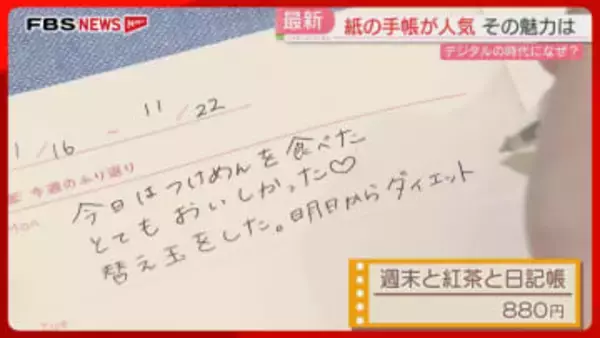 FBS NEWS N
最新
紙の手帳が人気 その魅力は
デジタルの時代になぜ?
1/16 ~ 11/22
今週のふり返り
今日はつけめんを食べた
とてもおいしかった♡
替え玉をした。明日からダイエット
週末と紅茶と日記帳
880円